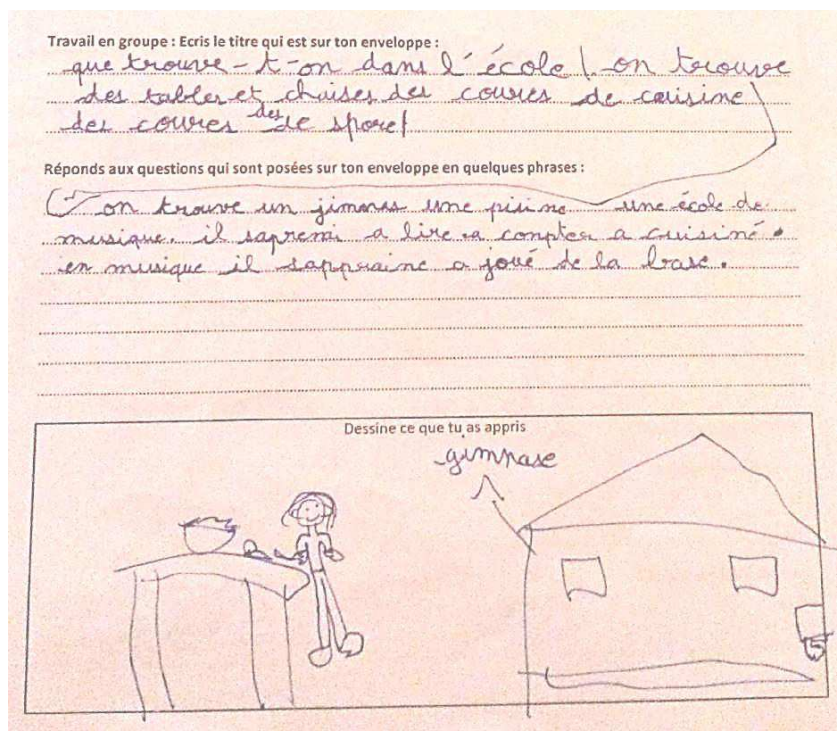 Travail en groupe : Ecris le titre qui est sur ton enveloppe :
que trouve-t-on dans l'école \. on trouve
des tables et chaises des coures de cuisine
des coures des de spore/
Réponds aux questions qui sont posées sur ton enveloppe en quelques phrases :
on trouve un jimnas une pisine une école de
musique. il sapremi a lire. a conpter a cuisiné.
en musique il sappraine a joué de la base.
Dessine ce que tu as appris
gimnase